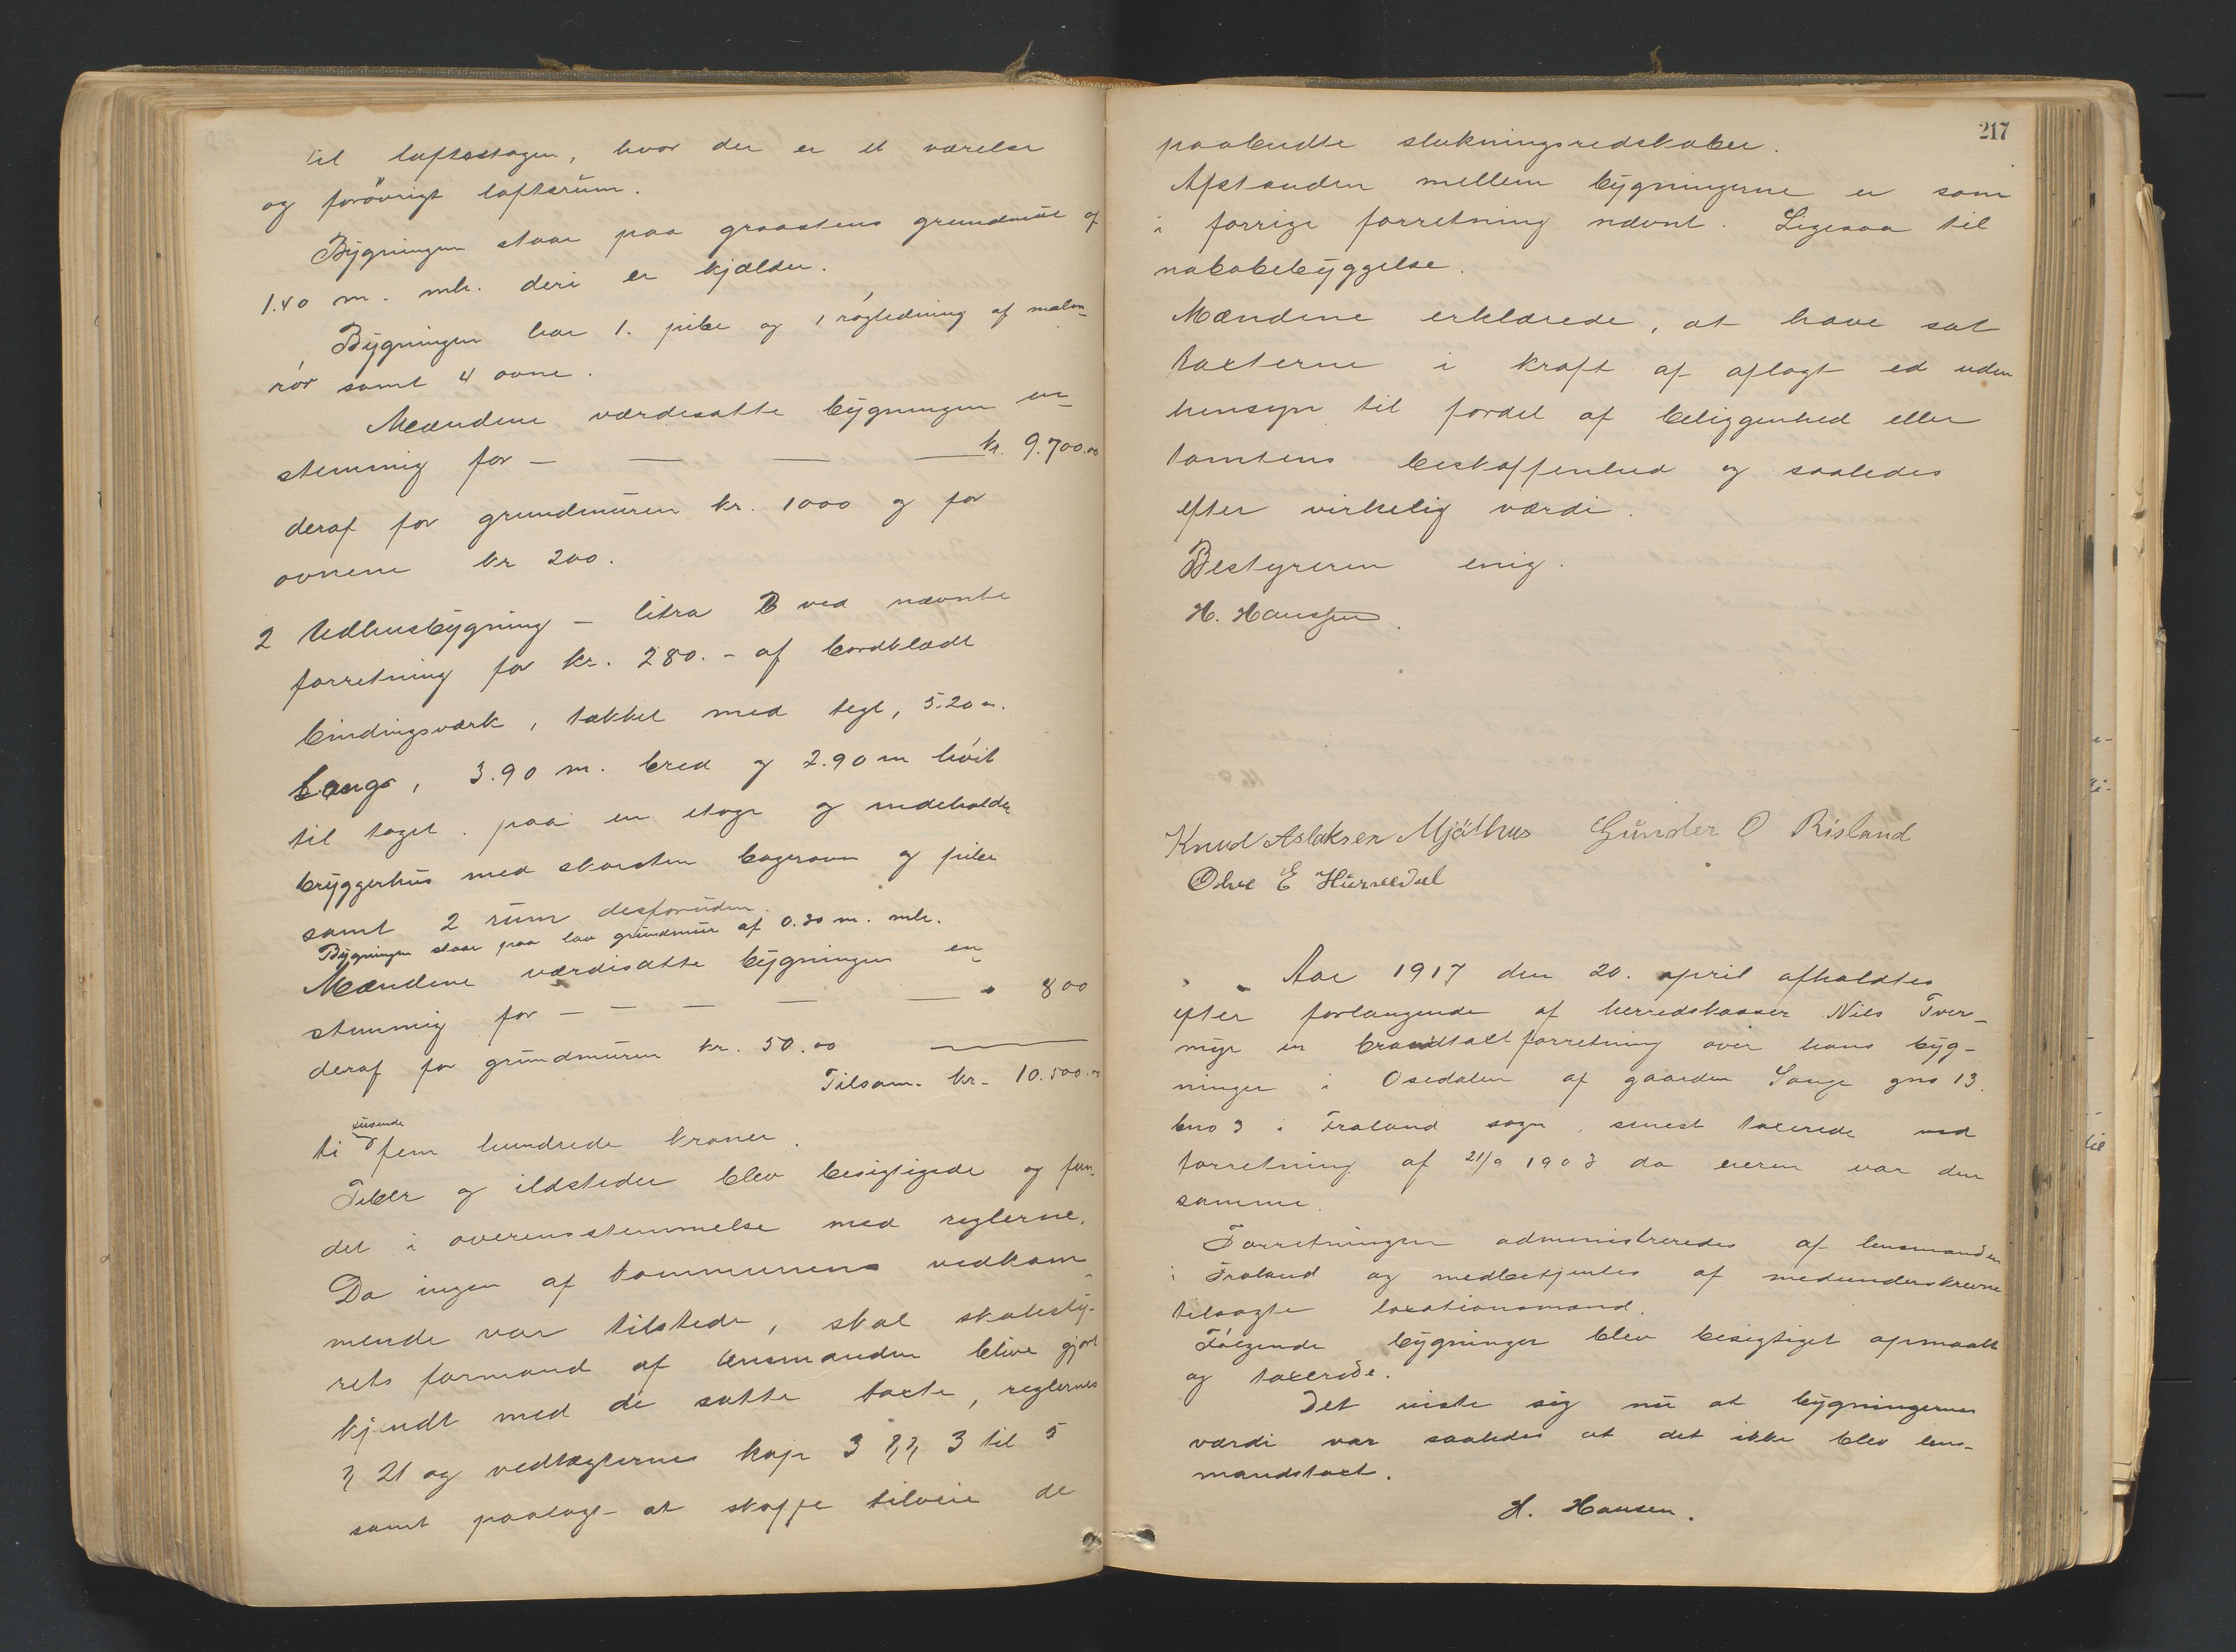 til loftsetagen, hvor der er et værelse
og forøvrigt loftsrum.
Bygningen staar paa graastens grundmur af
1.40 m. mh. deri er kjælder.
Bygningen har 1. pibe og 1 røgledning af
rør samt 4 ovne.
Mændene værdisatte bygningen en-
stemmig for — — — — kr. 9.700.00
deraf for grundmuren kr. 1000 og for
ovnene kr 200.
2 Udhusbygning – litra B ved nævnte
forretning for kr. 280.- af bordklædt
bindingsværk, tækket med tegl, 5.20 m.
langs, 3.90 m. bred og 2.90 m høit
til taget. paa en etage og indeholder
bryggerhus med skorsten bagerovn og pibe
samt 2 rum desforuden.
Bygningen staar paa lav grundmur af 0.30 m. mh.
Mændene værdisatte bygningen en-
stemmig for — — — — — " 800
deraf for grundmuren kr. 50.00
Tilsam. kr. 10.500.00
ti tusende fem hundrede kroner.
Piber og ildsteder blev besigtigede og fun-
det i overensstemmelse med reglerne.
Da ingen af kommunens vedkom-
mende var tilstede, skal skatesty-
rets formand af lensmanden blive gjort
kjendt med de satte taxte, reglernes
§ 21 og vedtægternes kap 3 §§ 3 til 5
samt paalagt at skaffe tilveie de
217
paabudte slukningsredskaber.
Afstanden mellem bygningerne er som
i forrige forretning nævnt. Ligesaa til
nabobebyggelse.
Mændene erklærede, at have sat
taxterne i kraft af aflagt ed uden
hensyn til fordel af beliggenhed eller
tomtens beskaffenhed og saaledes
efter virkelig værdi.
Bestyreren enig.
H. Hansen
Knud Aslaksen Mjålhus Gunder O Risland
Olve E Hurvedal
Aar 1917 den 20. april afholdtes
efter forlangende af herredskasser Niels Tver-
myr en brandtaktforretning over hans byg-
ninger i Osedalen af gaarden Sange gno 13.
bno 3 i Froland sogn, senest taxerede ved
forretning af 21/9 1903 da eieren var den
samme.
Forretningen administreredes af lensmanden
i Froland og medbetjentes af medunderskrevne
tilsagte taxationsmænd.
Følgende bygninger blev besigtiget opmaalt
og taxerede.
Det viste sig nu at bygningernes
værdi var saaledes at det ikke blev lens-
mandstaxt.
H. Hansen.